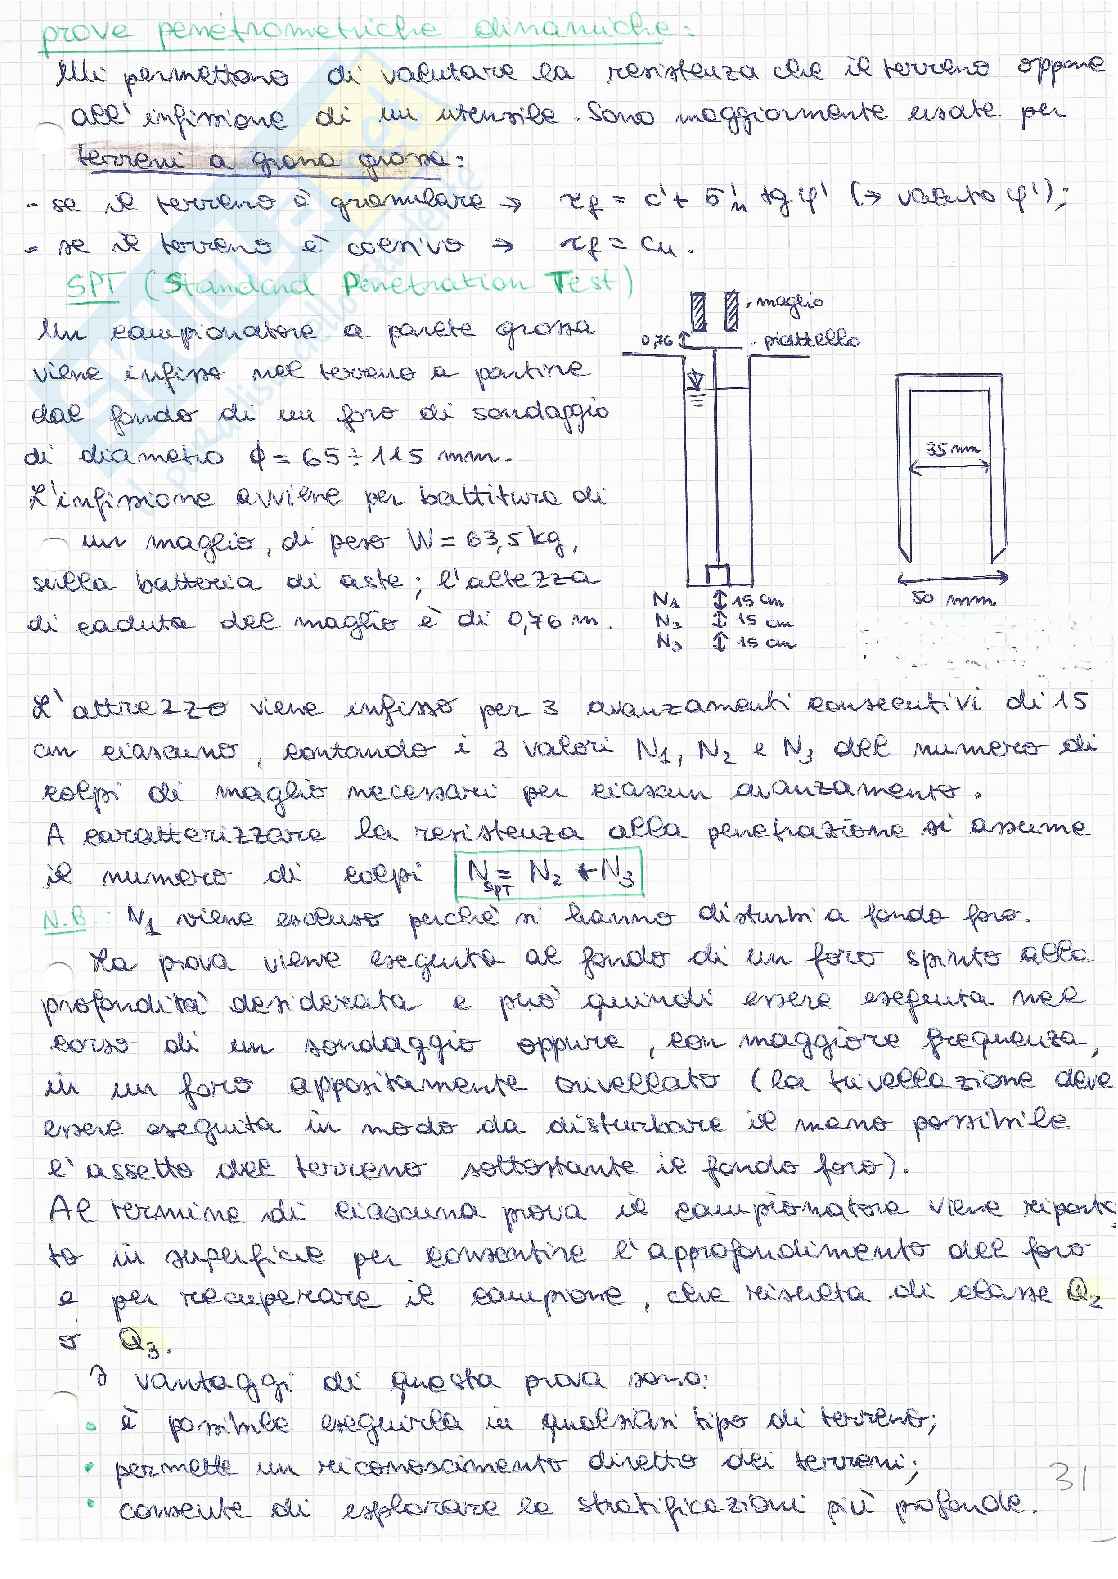 prove penetrometriche dinamiche:
Mi permettono di valutare la resistenza che il terreno oppone
all'infissione di un utensile. Sono maggiormente usate per
terreni a grana grossa:
- se il terreno è granulare → τf = c' + σ'n tg φ' (→ valuto φ');
- se il terreno è coesivo → τf = cu.
SPT (Standard Penetration Test)
Un campionatore a parete grossa
viene infisso nel terreno a partire
dal fondo di un foro di sondaggio
di diametro ϕ = 65 ÷ 115 mm.
L'infissione avviene per battitura di
un maglio, di peso W = 63,5 kg,
sulla batteria di aste; l'altezza
di caduta del maglio è di 0,76 m.
maglio
0,76
piattello
35 mm
50 mm
N1 15 cm
N2 15 cm
N3 15 cm
L'attrezzo viene infisso per 3 avanzamenti consecutivi di 15
cm ciascuno, contando i 3 valori N1, N2 e N3 del numero di
colpi di maglio necessari per ciascun avanzamento.
A caratterizzare la resistenza alla penetrazione si assume
il numero di colpi NSPT = N2 + N3
N.B: N1 viene escluso perchè si hanno disturbi a fondo foro.
La prova viene eseguita al fondo di un foro spinto alla
profondità desiderata e può quindi essere eseguita nel
corso di un sondaggio oppure, con maggiore frequenza,
in un foro appositamente trivellato (la trivellazione deve
essere eseguita in modo da disturbare il meno possibile
l'assetto del terreno sottostante il fondo foro).
Al termine di ciascuna prova il campionatore viene riporta
to in superficie per consentire l'approfondimento del foro
e per recuperare il campione, che risulta di classe Q2
o Q3.
I vantaggi di questa prova sono:
• è possibile eseguirla in qualsiasi tipo di terreno;
• permette un riconoscimento diretto dei terreni;
• consente di esplorare le stratificazioni più profonde.
31